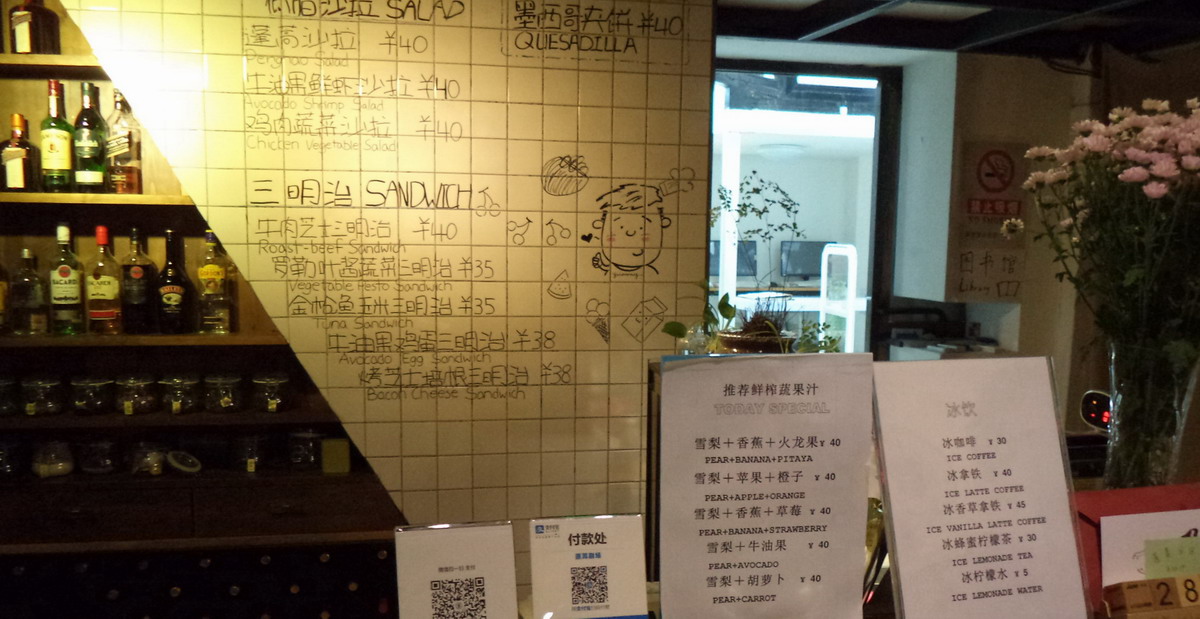 沙拉 SALAD
蓬蒿沙拉 ¥40
Penghao Salad
牛油果鲜虾沙拉 ¥40
Avocado Shrimp Salad
鸡肉蔬菜沙拉 ¥40
Chicken Vegetable Salad
三明治 SANDWICH
牛肉芝士三明治 ¥40
Roast-beef Sandwich
罗勒叶酱蔬菜三明治 ¥35
Vegetable Pesto Sandwich
金枪鱼玉米三明治 ¥35
Tuna Sandwich
牛油果鸡蛋三明治 ¥38
Avocado Egg Sandwich
烤芝士培根三明治 ¥38
Bacon Cheese Sandwich
墨西哥夹饼 ¥40
QUESADILLA
BACARDI
禁止吸烟
图书馆
Library
付款处
推荐鲜榨蔬果汁
TODAY SPECIAL
雪梨+香蕉+火龙果¥ 40
PEAR+BANANA+PITAYA
雪梨+苹果+橙子 ¥ 40
PEAR+APPLE+ORANGE
雪梨+香蕉+草莓 ¥ 40
PEAR+BANANA+STRAWBERRY
雪梨+牛油果 ¥ 40
PEAR+AVOCADO
雪梨+胡萝卜 ¥ 40
PEAR+CARROT
冰饮
冰咖啡 ¥ 30
ICE COFFEE
冰拿铁 ¥ 40
ICE LATTE COFFEE
冰香草拿铁 ¥ 45
ICE VANILLA LATTE COFFEE
冰蜂蜜柠檬茶 ¥ 30
ICE LEMONADE TEA
冰柠檬水 ¥ 5
ICE LEMONADE WATER
28